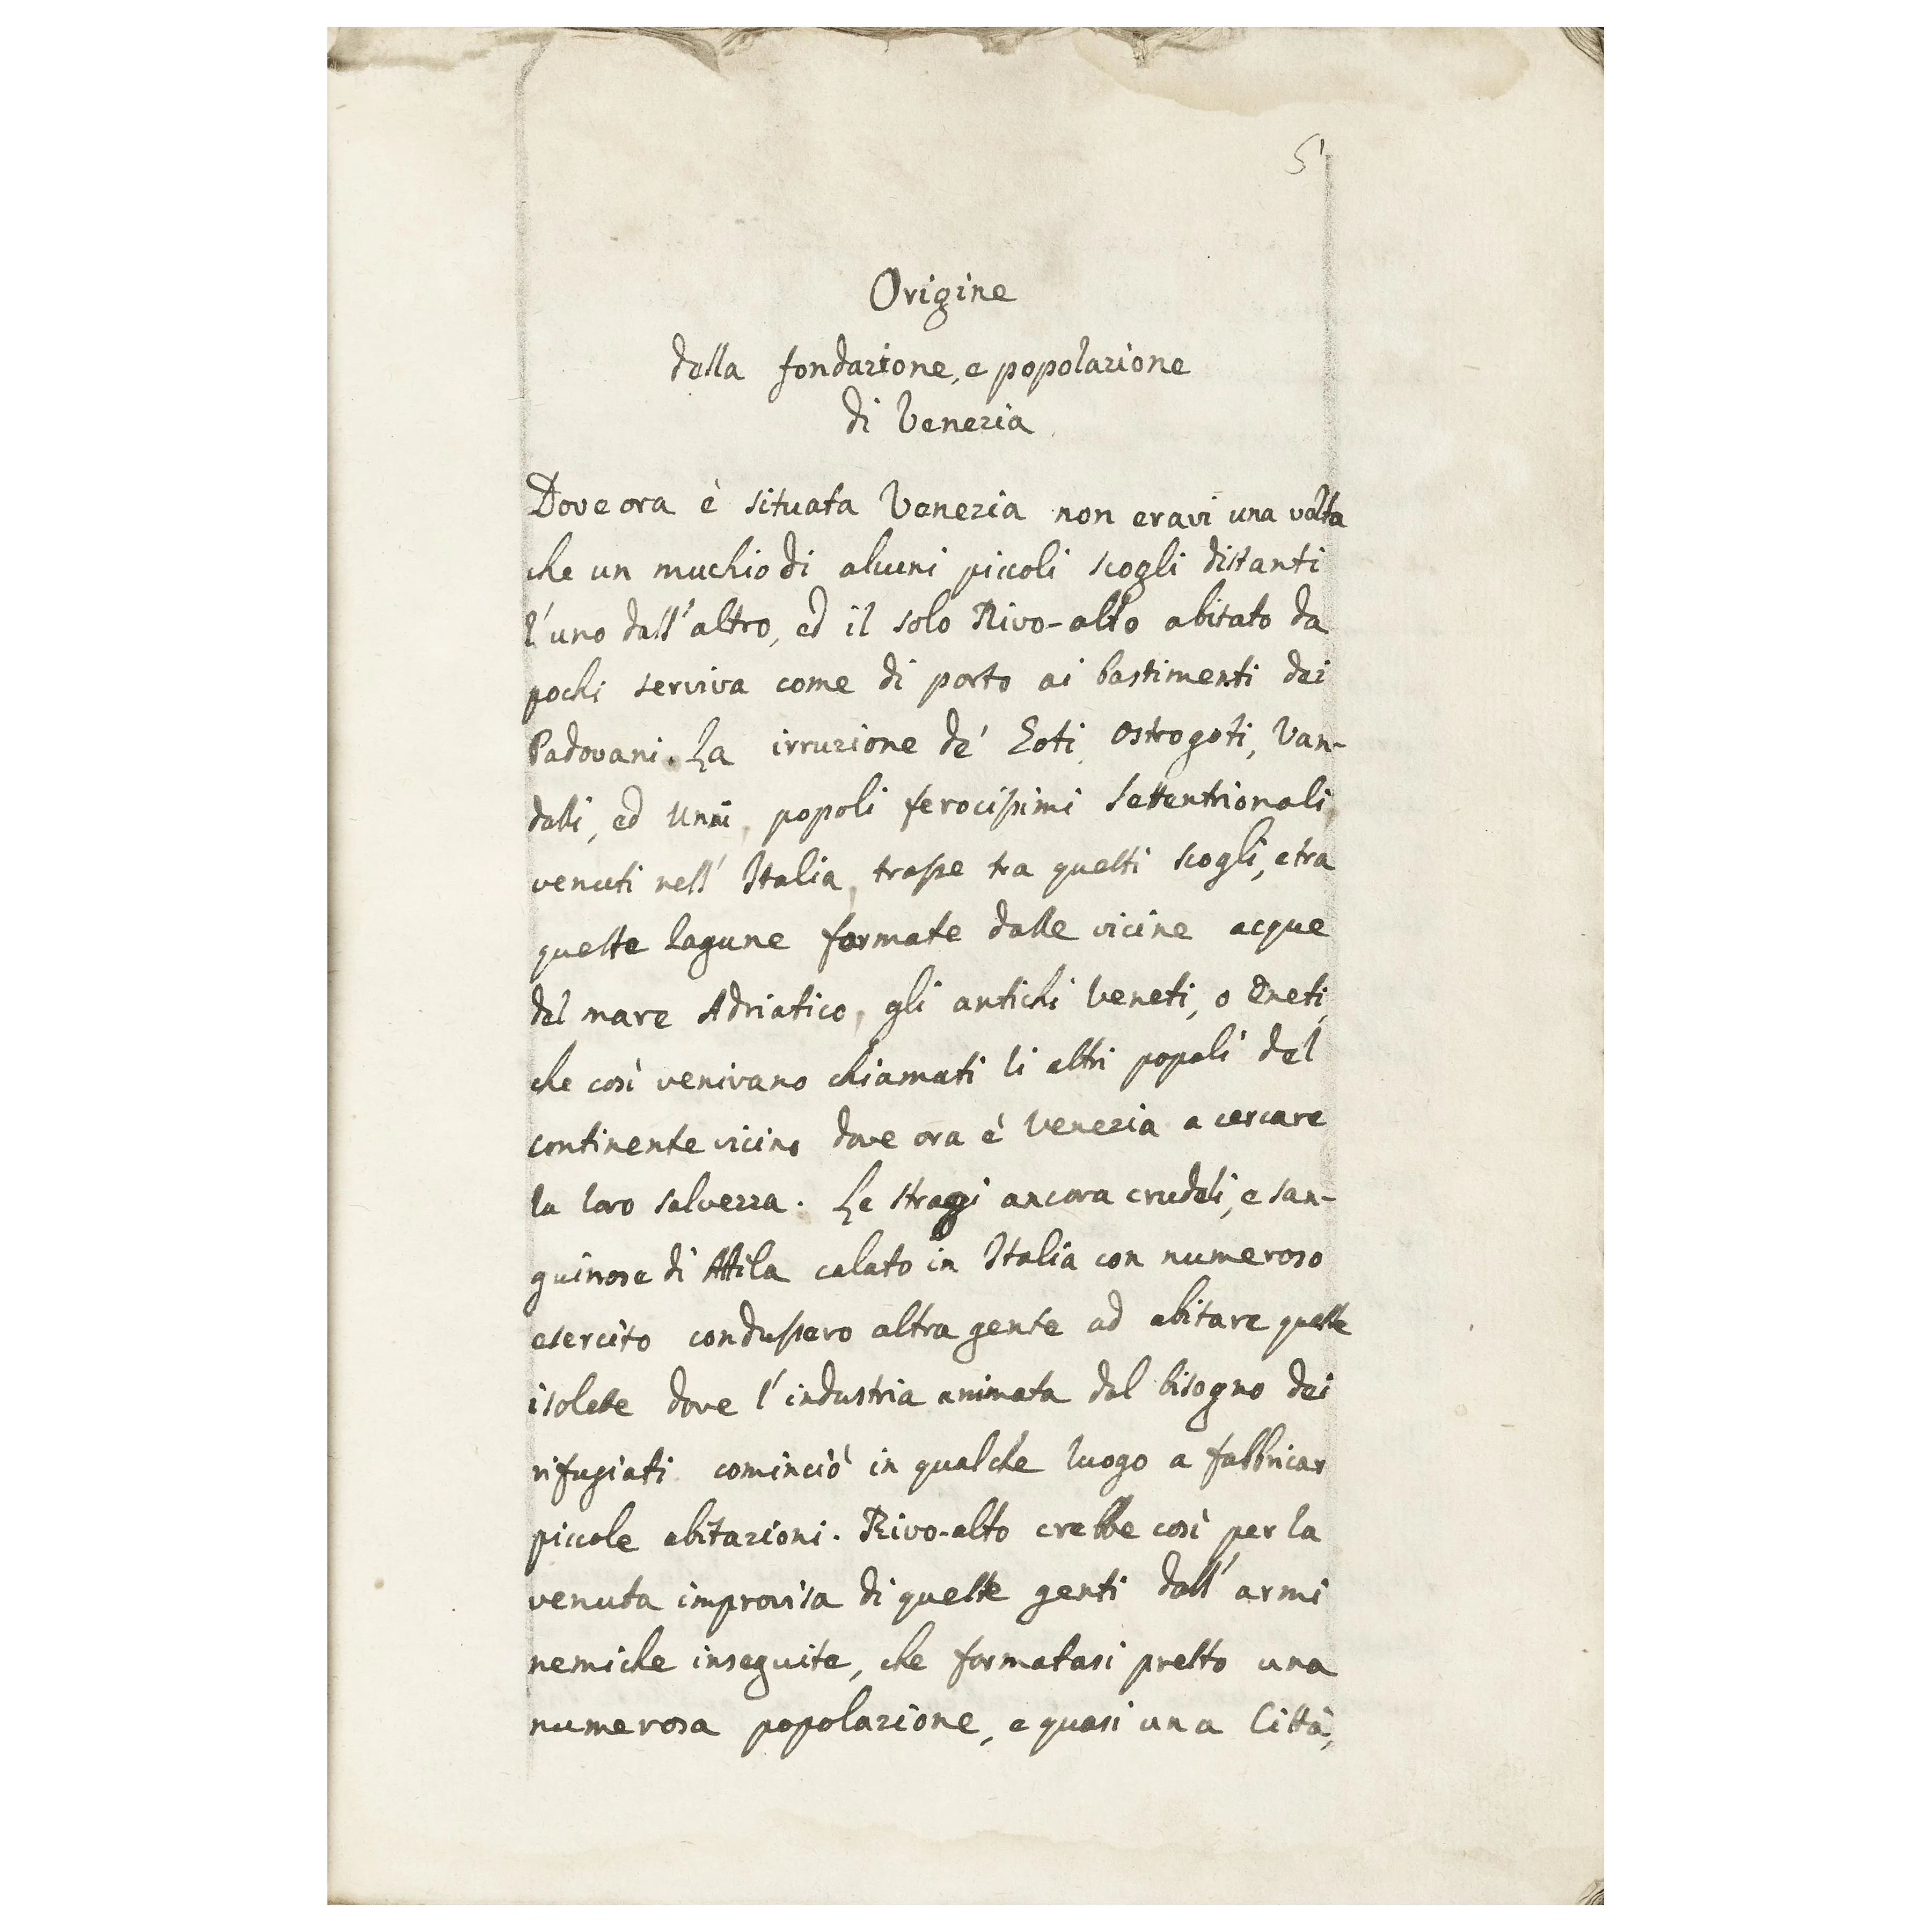 5
Origine
della fondazione, e popolazione
di Venezia
Dove ora è situata Venezia non eravi una volta
che un muchio di alcuni piccoli scogli distanti
l'uno dall'altro, ed il solo Rivo-alto abitato da
pochi serviva come di porto ai bastimenti dei
Padovani. La irruzione de' Goti, Ostrogoti, Van-
dali, ed Unni, popoli ferocissimi Settentrionali,
venuti nell' Italia, trasse tra questi scogli, e tra
queste lagune formate dalle vicine acque
del mare Adriatico, gli antichi Veneti, o Eneti,
che così venivano chiamati li altri popoli del
continente vicino dove ora è Venezia a cercare
la loro salvezza. Le stragi ancora crudeli, e san-
guinose di Attila calato in Italia con numeroso
esercito condussero altra gente ad abitare queste
isolette dove l'industria animata dal bisogno dei
rifugiati cominciò in qualche luogo a fabbricar
piccole abitazioni. Rivo-alto crebbe così per la
venuta improvisa di queste genti dall' armi
nemiche inseguite, che formatasi presto una
numerosa popolazione, e quasi una Città,